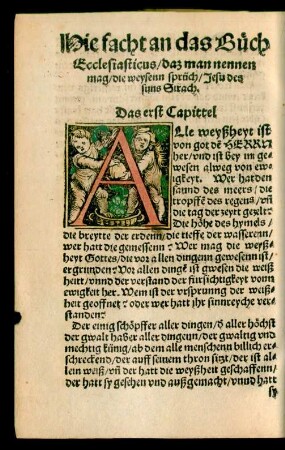 Hie facht an das Bůch
Ecclesiasticus/daz man nennen
mag/die weysenn sprüch/Jesu des
suns Sirach.
Das erst Capittel
ALle weyßheyt ist
von got dē HERRN
her/vnd ist bey im ge-
wesen alweg von ew-
igkeyt. Wer hat den
saund des meers/die
tropffē des regens/vñ
die tag der zeyt gezelt?
Die höhe des hymels/
die breytte der erdenn/die tieffe der wasserenn/
wer hatt die gemessenn? Wer mag die weyß-
heyt Gottes/die vor allen dingenn gewesenn ist/
ergrunden? Vor allen dingē ist gwesen die weiß
heitt/vnnd der verstand der fürsichtigkeyt vom
ewigkeit her. Wem ist der vrsprung der weiß-
heit geoffnet? oder wer hatt jhr sinnreyche ver-
standen?
Der einig schöpffer aller dingen/d aller höchst
der gwalt haber aller dingenn/der gwaltig vnd
mechtig künig/ab dem alle menschenn billich er-
schreckend/der auff seinem thron sitzt/der ist al-
lein weiß/vñ der hatt die weyßheit geschaffenn/
der hatt sy gesehen vnd außgemacht/vnnd hatt
sy